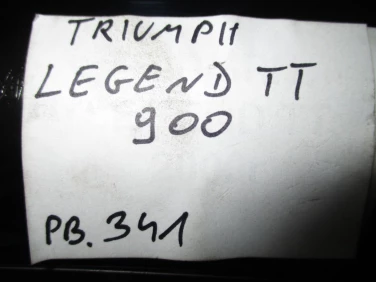 TRIUMPH
LEGEND TT
900
PB. 341